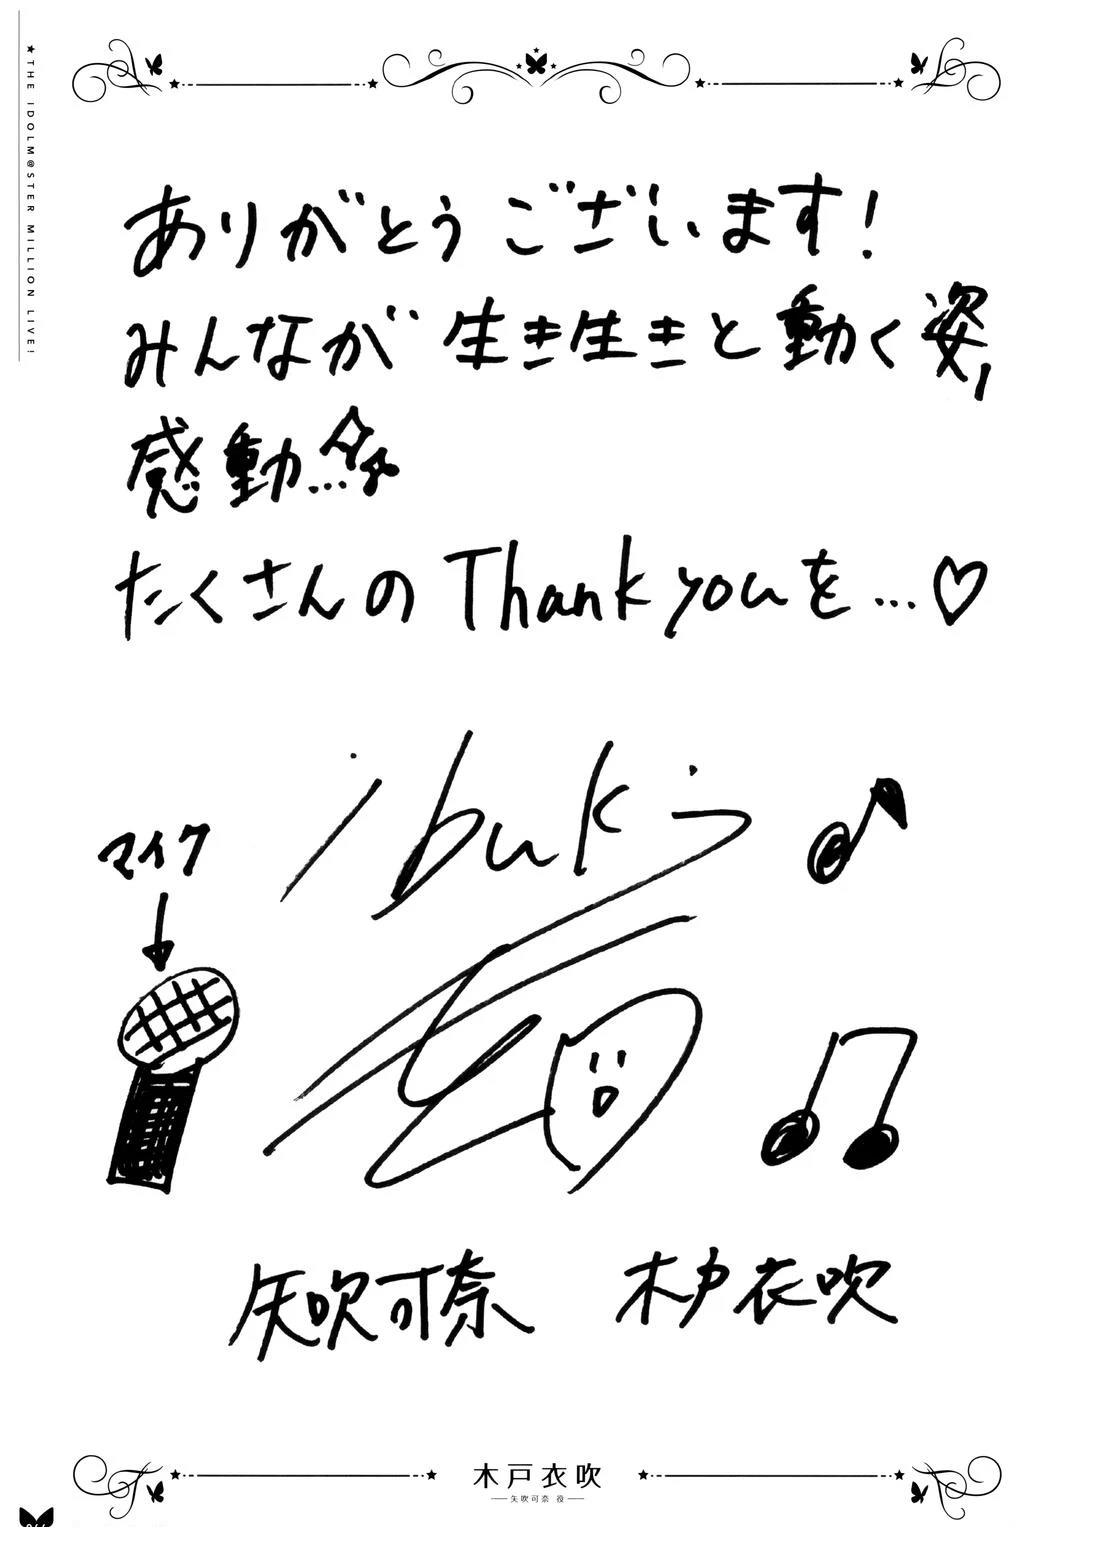 ★THE IDOLM@STER MILLION LIVE!
ありがとうございます!
みんなが生き生きと動く姿,
感動...
たくさんのThank youを...♡
ibuki
マイク
↓
矢吹可奈 木戸衣吹
木戸衣吹
矢吹可奈 役